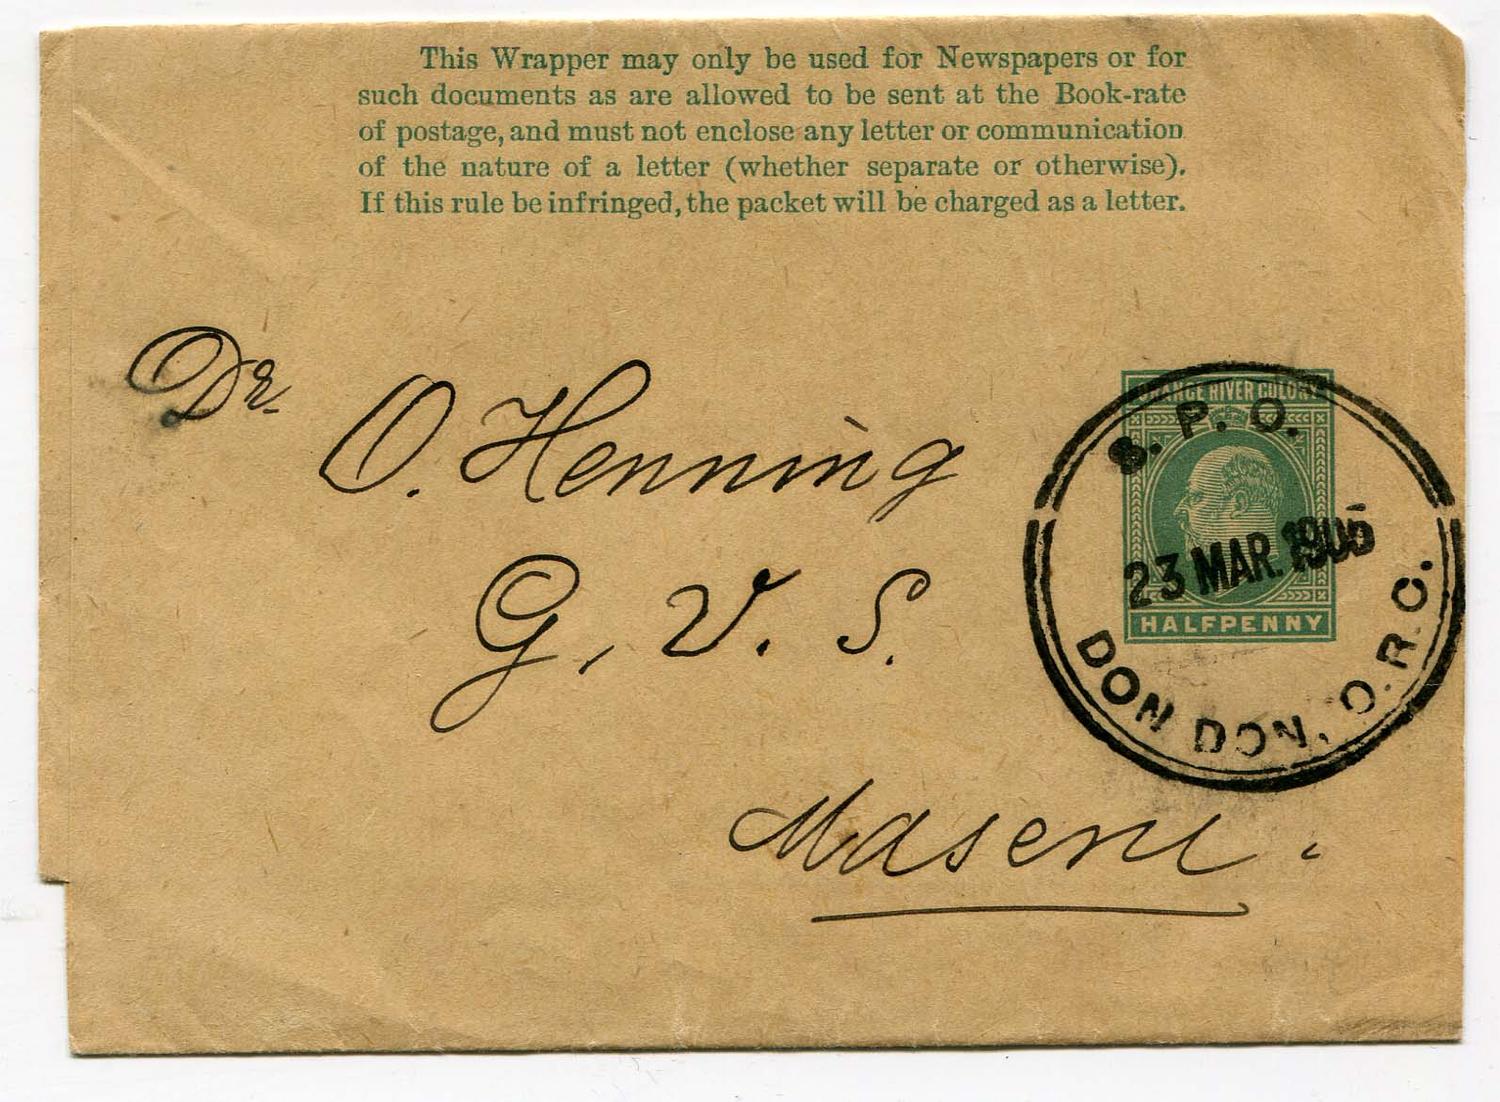 This Wrapper may only be used for Newspapers or for
such documents as are allowed to be sent at the Book-rate
of postage, and must not enclose any letter or communication
of the nature of a letter (whether separate or otherwise).
If this rule be infringed, the packet will be charged as a letter.
Dr. O. Henning
G. V. S.
Maseru.
ORANGE RIVER COLONY
HALFPENNY
S. P. O.
23 MAR. 1905
DON DON, O.R.C.